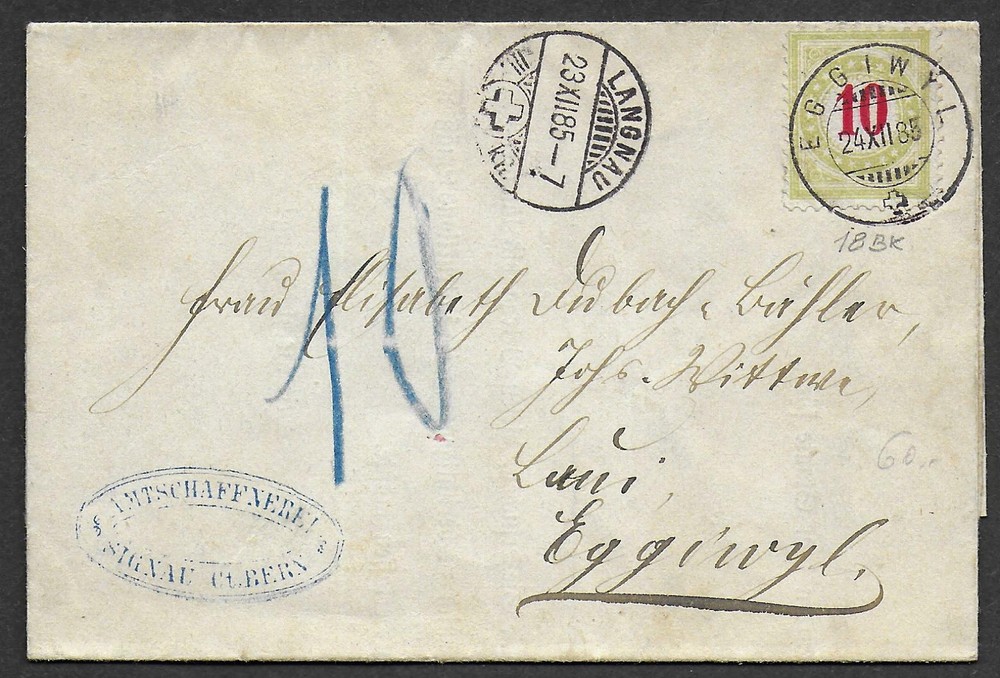 LANGNAU
23XII85–7
EGGIWYL
10
24XII85
18BK
10
Frau Elisabeth Dubach-Bühler,
Johs. Wittwe,
Laui,
Eggiwyl.
60.-
AMTSCHAFFNEREI
SIGNAU CT. BERN